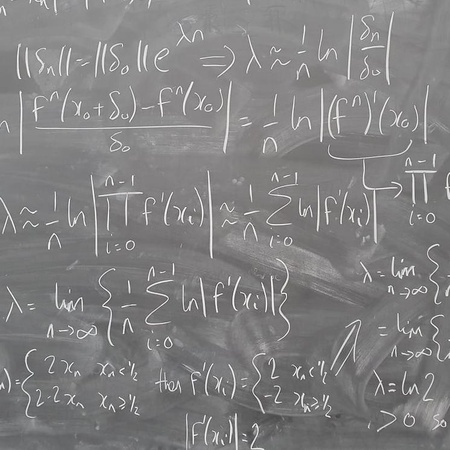 ||δₙ|| = ||δ₀|| e^{λn} ⇒ λ ≈ 1/n ln |δₙ/δ₀|
n | (fⁿ(x₀+δ₀) - fⁿ(x₀)) / δ₀ | = 1/n ln |(fⁿ)'(x₀)|
∏_{i=0}^{n-1} f
λ ≈ 1/n ln | ∏_{i=0}^{n-1} f'(xᵢ) | ≈ 1/n ∑_{i=0}^{n-1} ln |f'(xᵢ)|
λ = lim_{n→∞} { 1/n ∑_{i=0}^{n-1} ln |f'(xᵢ)| }
λ = lim_{n→∞} {
= lim_{n→∞} {
) = { 2xₙ xₙ<1/2
2-2xₙ xₙ≥1/2
then f'(xᵢ) = { 2 xₙ<1/2
-2 xₙ≥1/2
λ = ln 2
> 0 so
|f'(xᵢ)| = 2